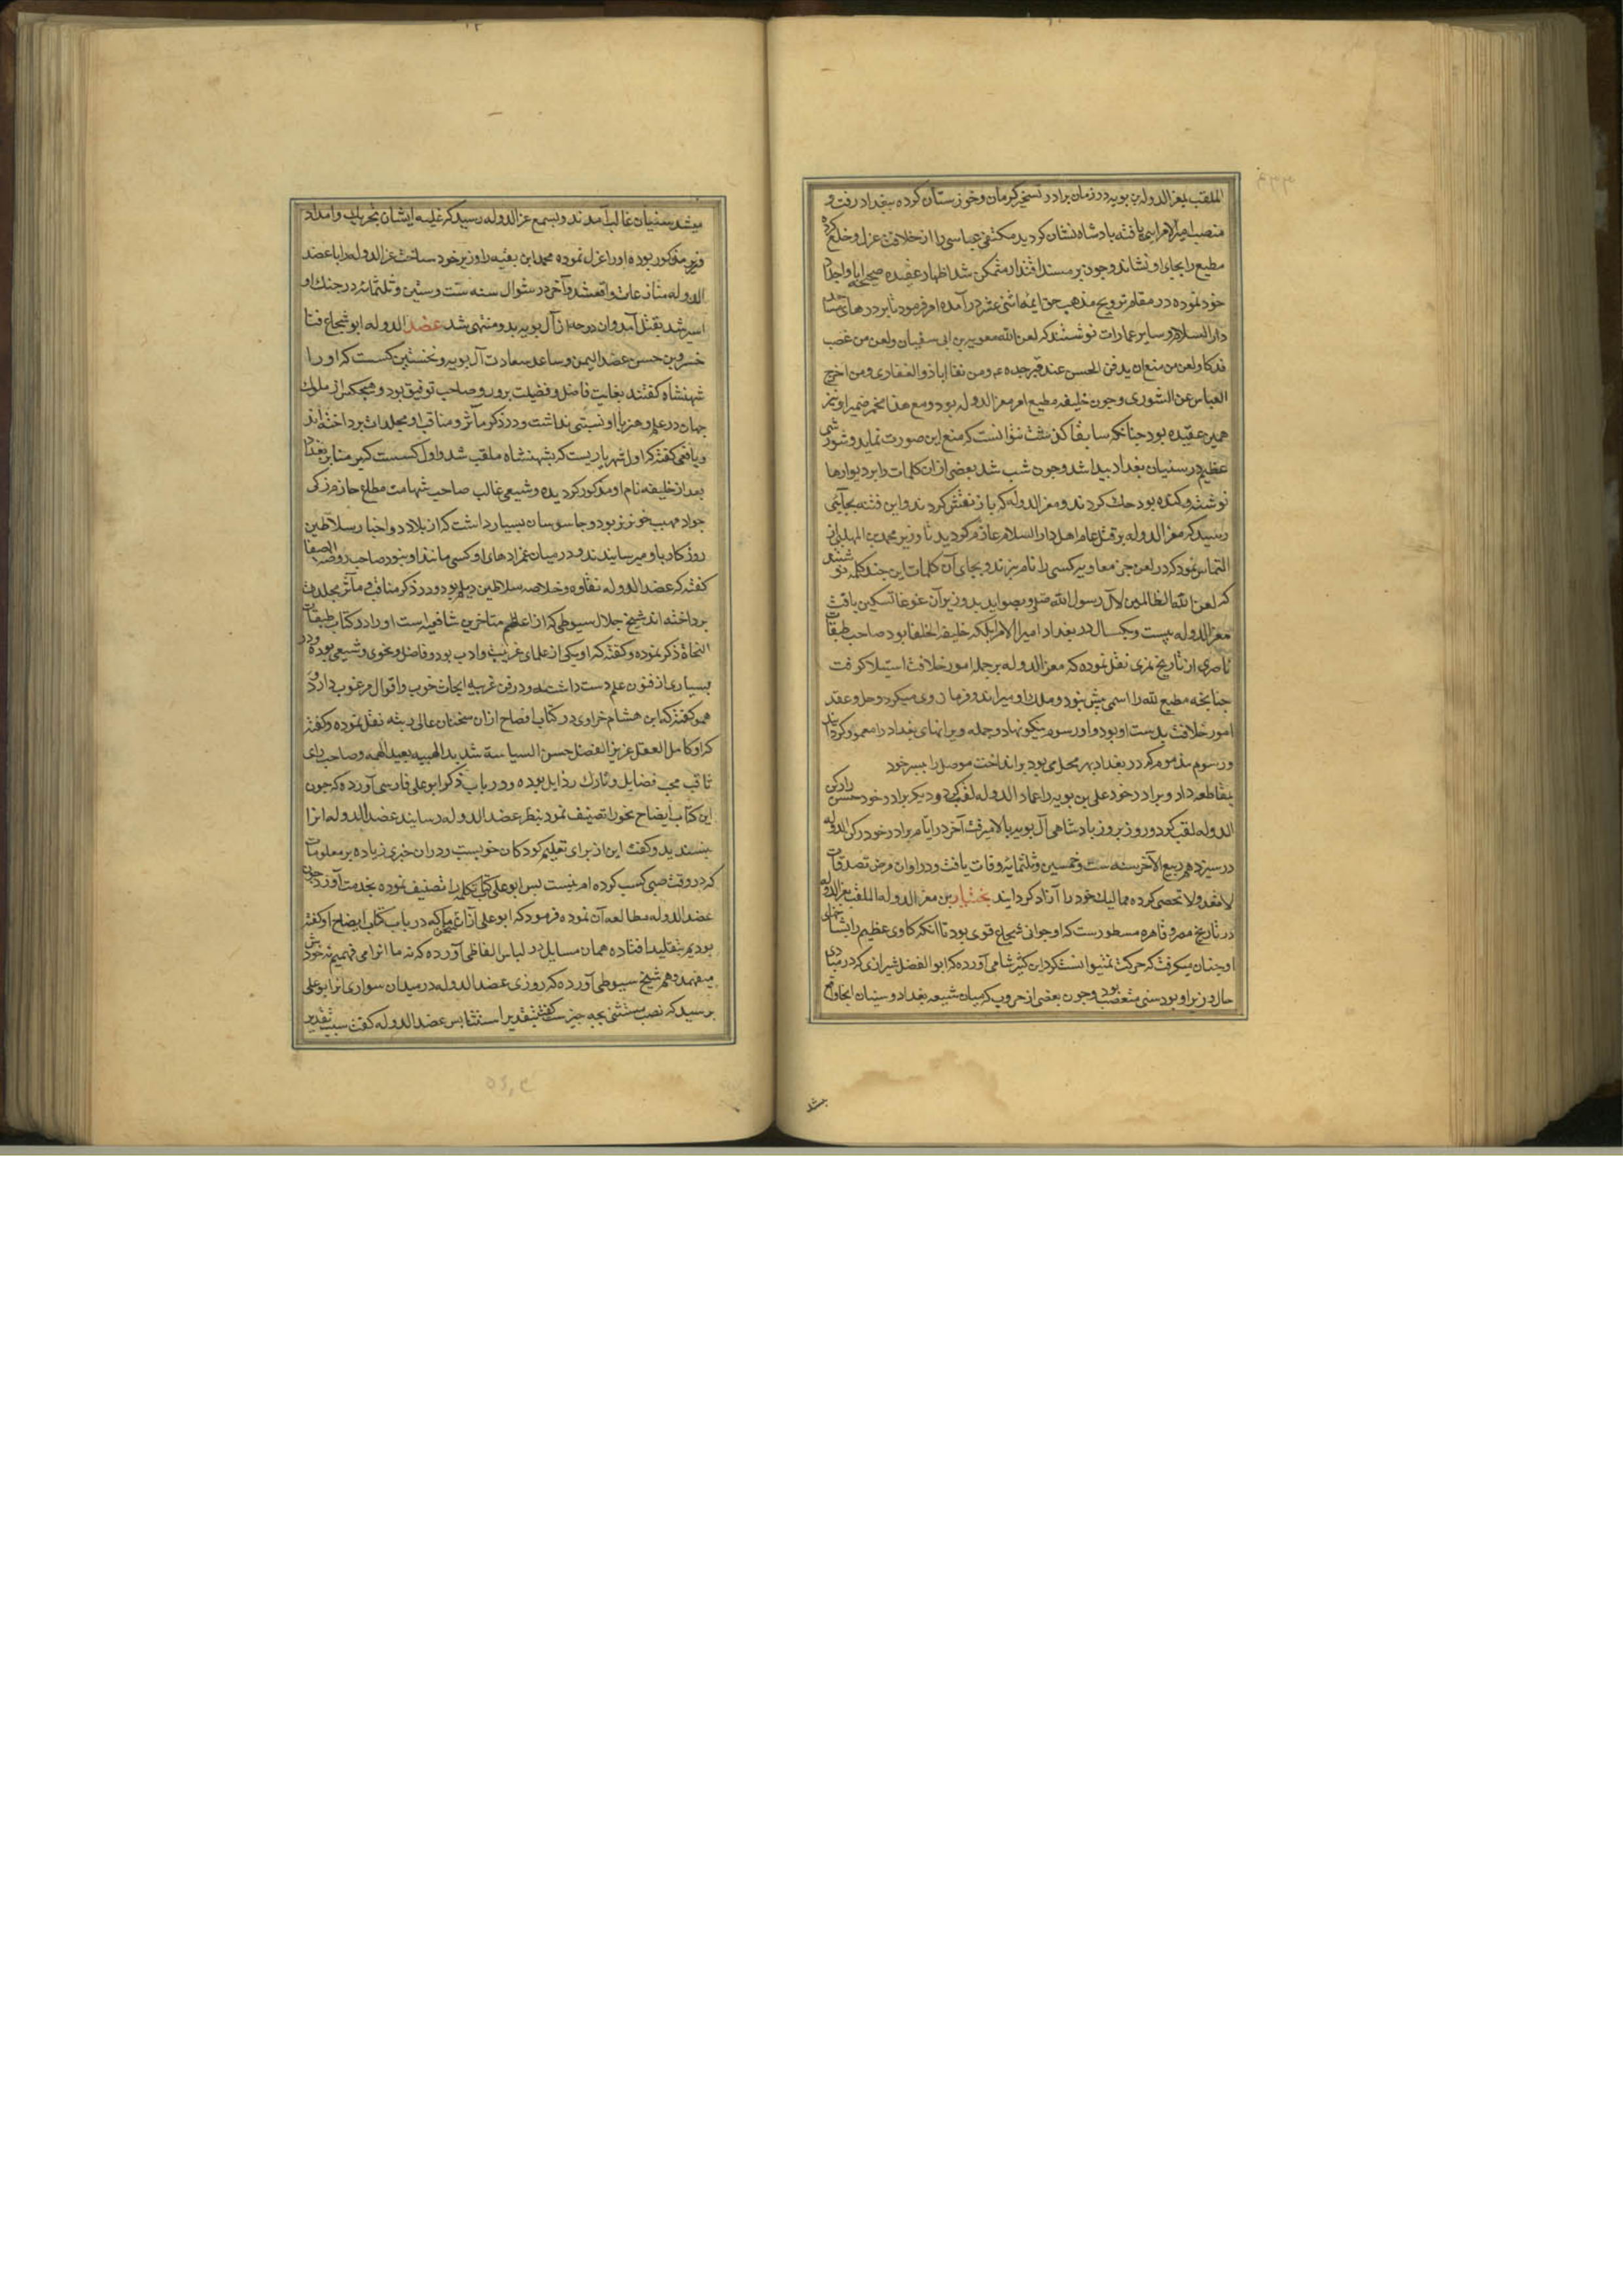 الملقب بمعز الدوله بن بویه در زمان برادر تسخیر کرمان و خوزستان کرده ببغداد رفت و
منصب امیر الامرایی یافته پادشاه نشان کردید مکتفی عباسی را از خلافت عزل و خلع کرده
مطیع را بجای او نشاند و چون بر مسند اقتدار متمکن شد اظهار عقیده صحیحه اباو اجداد
خود نموده در مقام ترویج مذهب حق ایمه اثنی عشر در آمده امر فرمود تا بر درهای مساجد
دار السلام و سایر عمارات نوشتند که لعن الله معویه بن ابی سفیان و لعن من غصب
فدکا و لعن من منع ان یدفن الحسن عند قبر جده ع م و من نفا اباذر الغفاری و من اخرج
العباس عن الشوری و چون خلیفه مطیع امر معز الدوله بود و مع هذا مخمر ضمیر او نیز
همین عقیده بود چنانکه سابقا کذشت نتوانست که منع این صورت نماید و شورشی
عظیم در سنیان بغداد پیدا شد و چون شب شد بعضی از ان کلمات را بر دیوارها
نوشته و کنده بود حک کردند و معز الدوله کرباز نقش کردند و این فتنه بجائی
رسید که معز الدوله بر قتل عام اهل دار السلام عازم کردید تا وزیر محمد بن المهلبی از
التماس نمود که در لعن جز معاویه کسی را نام نبرند و بجای آن کلمات این چند کلمه نوشتند
که لعن الله الظالمین لآل رسول الله ص و بصوابدید وزیر آن غوغا تسکین یافت
معز الدوله بیست و یکسال در بغداد امیر الامرا بلکه خلیفه الخلفا بود صاحب طبقات
ناصری از تاریخ نقل نموده که معز الدوله بر جمله امور خلافت استیلا کرفت
چنانچه مطیع لله را اسمی بیش نبود و ملک او میراند و فرمان روی میکرد و حل و عقد
امور خلافت بدست او بود و او رسوم نیکو نهاد و جمله ویرانهای بغداد را معمور کردانید
و رسوم مذموم که در بغداد بهر محل می بود برانداخت موصل را بپسر خود
بمقاطعه داد و برادر خود علی بن بویه را عماد الدوله لقب کرد و دیکر برادر خود حسن را رکن
الدوله لقب کرد و روز بروز پادشاهی آل بویه بالا میرفت آخر در ایام برادر خود رکن الدوله
در سیزدهم ربیع الآخر سنه ست و خمسین و ثلثمایه وفات یافت و در اوان مرض تصدقات
لا تعد ولا تحصی کرده ممالیک خود را آزاد کردانید بختیار بن معز الدوله الملقب بعز الدوله
در تاریخ مصر و قاهره مسطورست که او جوانی شجاع قوی بود تا آنکه کاوی عظیم را بشاخهای
او چنان میکرفت که حرکت نمیتوانست کرد ابن کثیر شامی آورده که ابو الفضل شیرازی که در مبادی
حال وزیر او بود سنی متعصب بود و چون بعضی از حروب که میان شیعه بغداد و سنیان انجا واقع
میشد
میشد سنیان غالب آمدند و بسمع عز الدوله رسید که غلبه ایشان بتحریک و امداد
وزیر مذکور بوده او را عزل نموده محمد ابن بقیه را وزیر خود ساخت عز الدوله را با عضد
الدوله منازعات واقع شد و آخر در شوال سنه ست و ستین و ثلثمائه در جنک او
اسیر شد بقتل آمد و ان دوحه از آل بویه بدو منتهی شد عضد الدوله ابو شجاع فنا
خسرو بن حسن عضد الیمن و ساعد سعادت آل بویه و نخستین کسست که او را
شهنشاه کفتند بغایت فاضل و فضیلت پرور و صاحب توفیق بود و هیچکس از ملوک
جهان در علم و هنر با او نسبتی نداشت و در ذکر مآثر و مناقب او مجلدات پرداخته اند
و یافعی کفته که اول شهریاریست که بشهنشاه ملقب شد و اول کسست که بر منابر بغداد
بعد از خلیفه نام او مذکور کردیده و شیعی غالب صاحب شهامت مطلع حازم زکی
جواد مهیب خونریز بود و جاسوسان بسیار داشت که از بلاد دو اخبار سلاطین
روزکار باو میرسانیدند و در میان عمزادهای او کسی مانند او نبود صاحب روضه الصفا
کفته که عضد الدوله نقاوه و خلاصه سلاطین دیلم بود و در ذکر مناقب و مآثر مجلدات
پرداخته اند شیخ جلال سیوطی که از اعاظم متاخرین شافعیه است او را در کتاب طبقات
النحاة ذکر نموده و کفته که او یکی از علمای عربیت و ادب بود و فاضل و نحوی و شیعی بوده و در
بسیاری از فنون علم دست داشته و در فن عربیه ابحاث خوب و اقوال مرغوب دارد و
هم کفته که ابن هشام خراوی در کتاب افصاح از ان سخنان عالی رتبه نقل نموده و کفته
که او کامل العقل عزیز الفضل حسن السیاسة شدید الهیبه بعید الهمه و صاحب رای
ثاقب محب فضایل و تارک رذایل بوده و در باب ذکر ابو علی فارسی آورده که چون
این کتاب ایضاح نحو را تصنیف نمود بنظر عضد الدوله رسانید عضد الدوله انرا
نپسندید و کفت این از برای تعلیم کودکان خوبست و در ان خبری زیاده بر معلومات
که در وقت صبی کسب کرده ام نیست پس ابو علی کتاب تکمله را تصنیف نموده بخدمت آورد چون
عضد الدوله مطالعه آن نموده فرمود که ابو علی از ان سخن ما که در باب کتاب ایضاح او کفته
بودیم بتقلید افتاده همان مسایل در لباس الفاظی آورده که نه ما انرا می فهمیم نه خودش
میفهمد و هم شیخ سیوطی آورده که روزی عضد الدوله در میدان سواری از ابو علی
پرسید که نصب مستثنی بچه چیز ست کفت بتقدیر استثنا پس عضد الدوله کفت سبب تقدیر